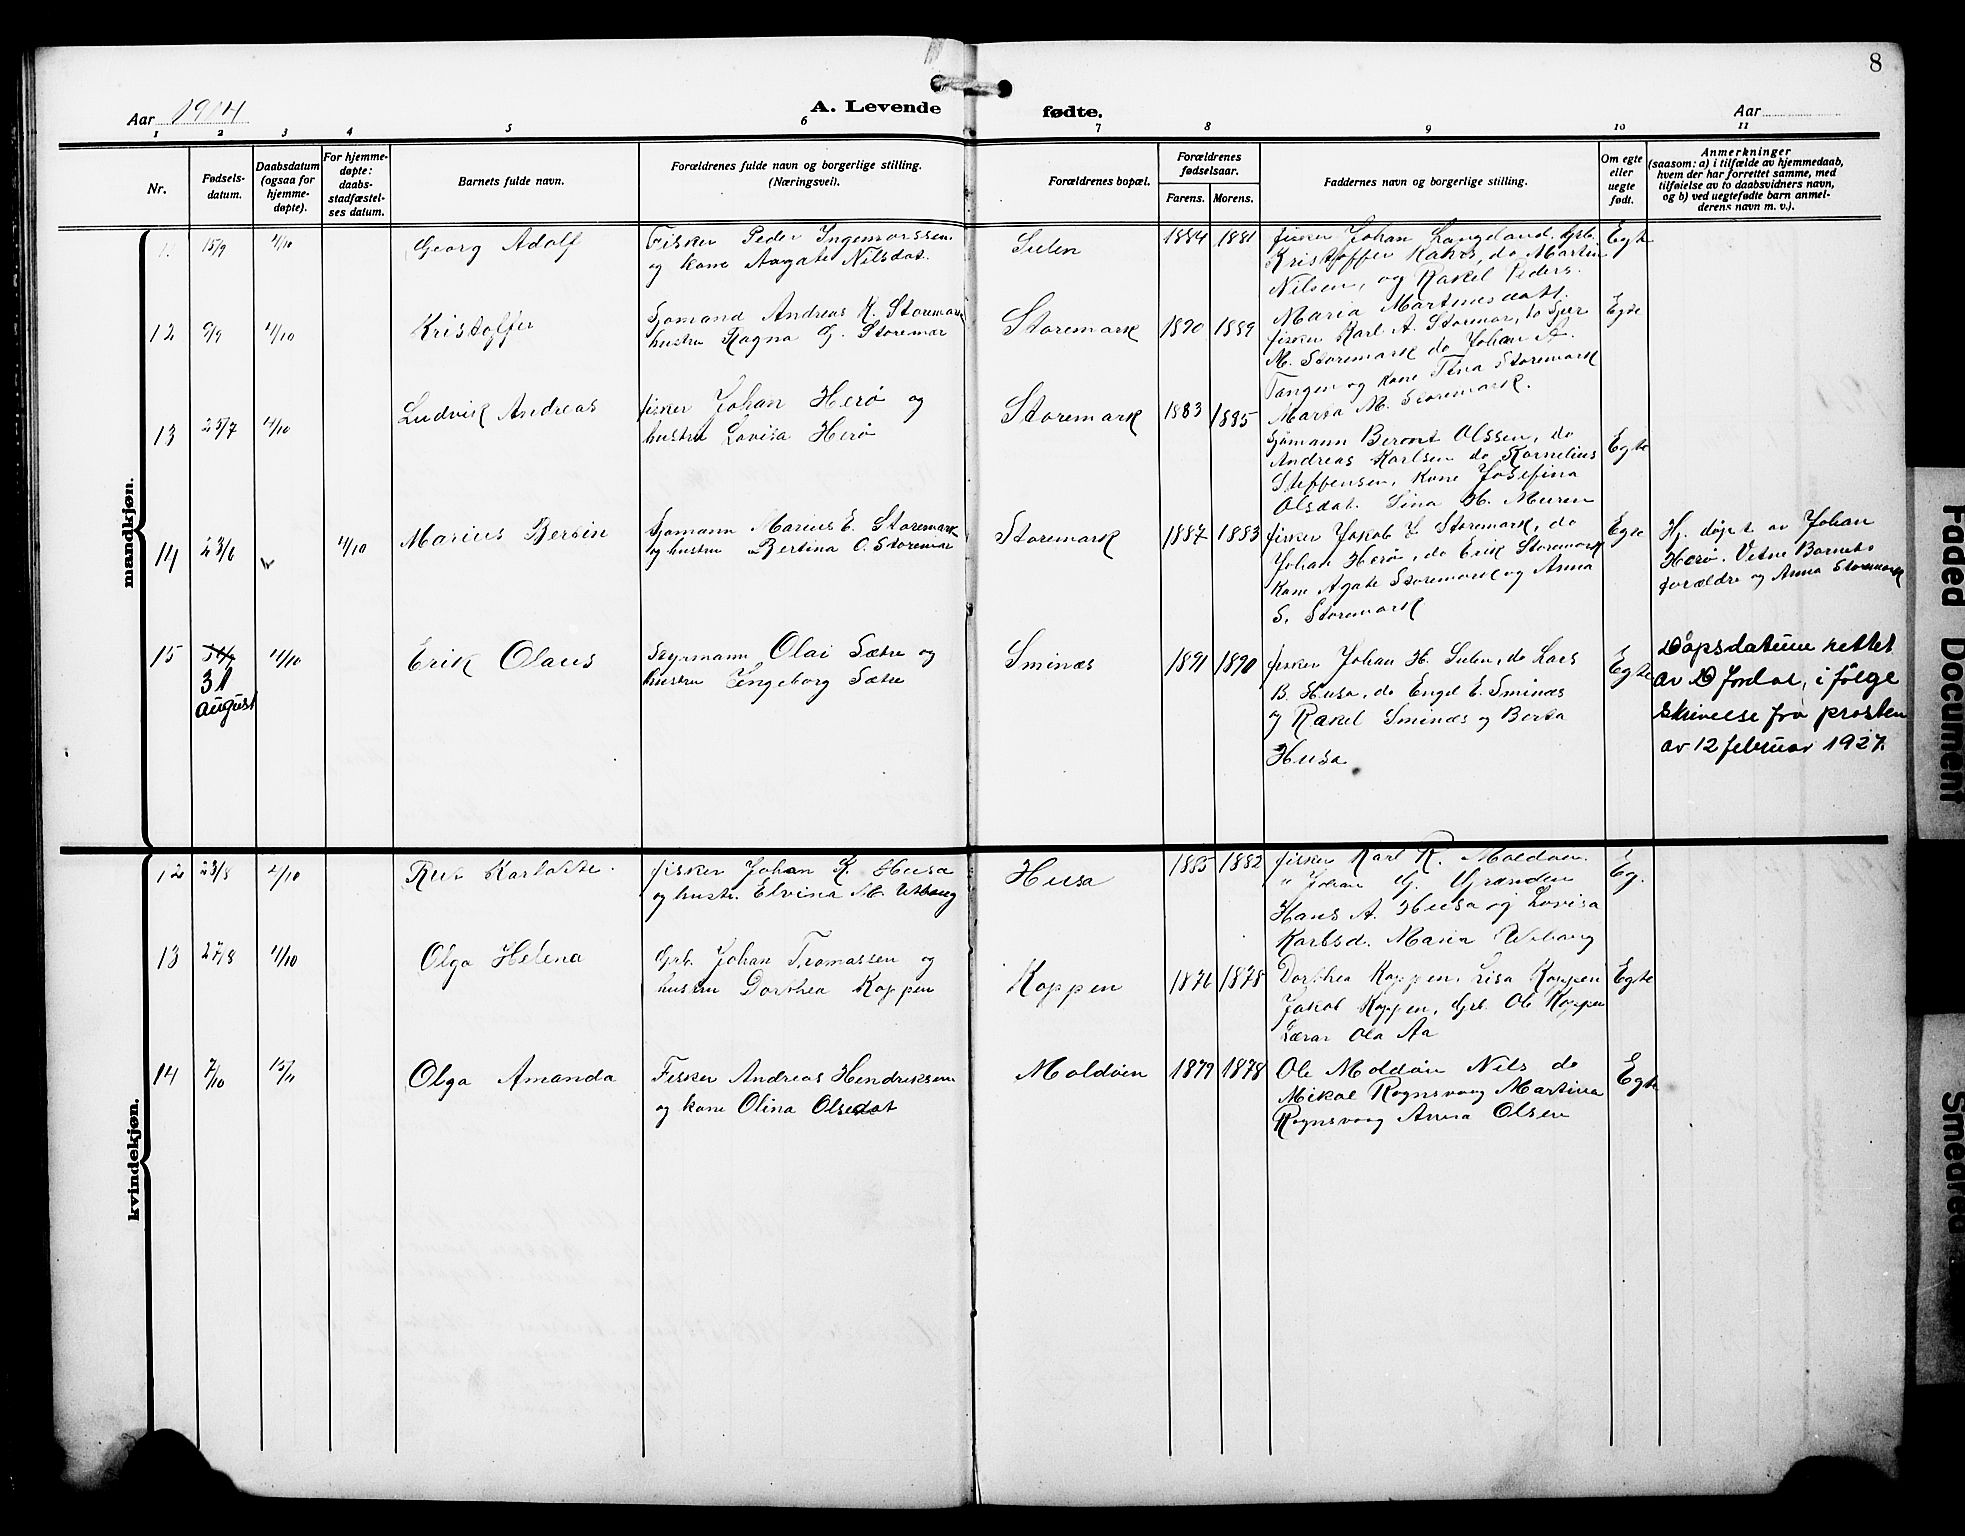 8
Aar 1914
A. Levende fødte.
Aar
1 2 3 4 5 6 7 8 9 10 11
Nr.
Fødsels-
datum.
Daabsdatum
(ogsaa for
hjemme-
døpte).
For hjemme-
døpte:
daabs-
stadfæstel-
ses datum.
Barnets fulde navn.
Forældrenes fulde navn og borgerlige stilling.
(Næringsvei).
Forældrenes bopæl.
Forældrenes
fødselsaar.
Farens. Morens.
Faddernes navn og borgerlige stilling.
Om egte
eller
uegte
født.
Anmerkninger
(saasom: a) i tilfælde av hjemmedaab,
hvem der har forrettet samme, med
tilføielse av to daabsvidners navn,
og b) ved uegtefødte barn anmel-
derens navn m. v.).
mandkjøn.
11 15/9 4/10 Georg Adolf
Fisker Peder Ingemorssen
og kone Aagate Nilsdat.
Sulen 1884 1881
fisker Johan Langeland, Grb.
Kristoffer Kahrs, do Martin
Nilsen, og Rakel Peders.
Maria Martinesdatt.
Egte
12 9/9 4/10 Kristoffer
Sjømand Andreas K. Storemark
hustru Ragna G. Storemar
Storemark 1890 1889
fisker Karl A. Storemar, do Sjur
M. Storemark do Johan A.
Tangen og kone Tina Storemark
Maria M. Storemark.
Egte
13 23/7 4/10 Ludvik Andreas
fisker Johan Herø og
hustru Lovisa Herø
Storemark 1883 1885
Sjømann Beront Olssen, do
Andreas Karlsen do Kornelius
Steffensen, Kone Josefina
Olsdat. Sina H. Muren
Egte
14 23/6 4/10 Marius Bertin
Sjømann Marius E. Storemark
og hustru Bertina O. Storemar
Storemark 1887 1883
fisker Jakob J Storemark, do
Johan Herø, do Erik Storemark
Kone Agate Storemark og Anna
S. Storemark
Egte
Hj. døpt av Johan
Herø. Vitne Barnets
forældre og Anna Storemark
15
31
august
4/10 Erik Olaus
Styrmann Olai Sætre og
hustru Ingeborg Sætre
Sminæs 1891 1890
fisker Johan H. Sulen, do Lars
B. Husa, do Engel E. Sminæs
og Rakel Sminæs og Berta
Husa
Egte
Dåpsdatum rettet
av D Fordal, i følge
skrivelse fra prosten
av 12 februar 1927.
kvindekjøn.
12 23/8 4/10 Rut Karlotte.
fisker Johan K. Husa
og hustr. Elvina M. Utvaag
Husa 1885 1882
fisker Karl K. Moldøen.
" Johan G. Grønden
Hans A. Husa og Lovisa
Karlsd. Maria Utvaag
Eg.
13 27/8 4/10 Olga Helena
Grb. Johan Tomassen og
hustru Dorthea Koppen
Koppen 1876 1878
Dorthea Koppen, Lisa Koppen
Jakob Koppen, Grb. Ole Koppen
Lærar Ola Aa
Egte
14 7/10 15/11 Olga Amanda
Fisker Andreas Hendriksen
og kone Olina Olsedat
Moldøen 1879 1878
Ole Moldøen Nils do
Mikal Rognsvaag Martina
Rognsvaag Anna Olsen
Egte
Faded Document
Smeared